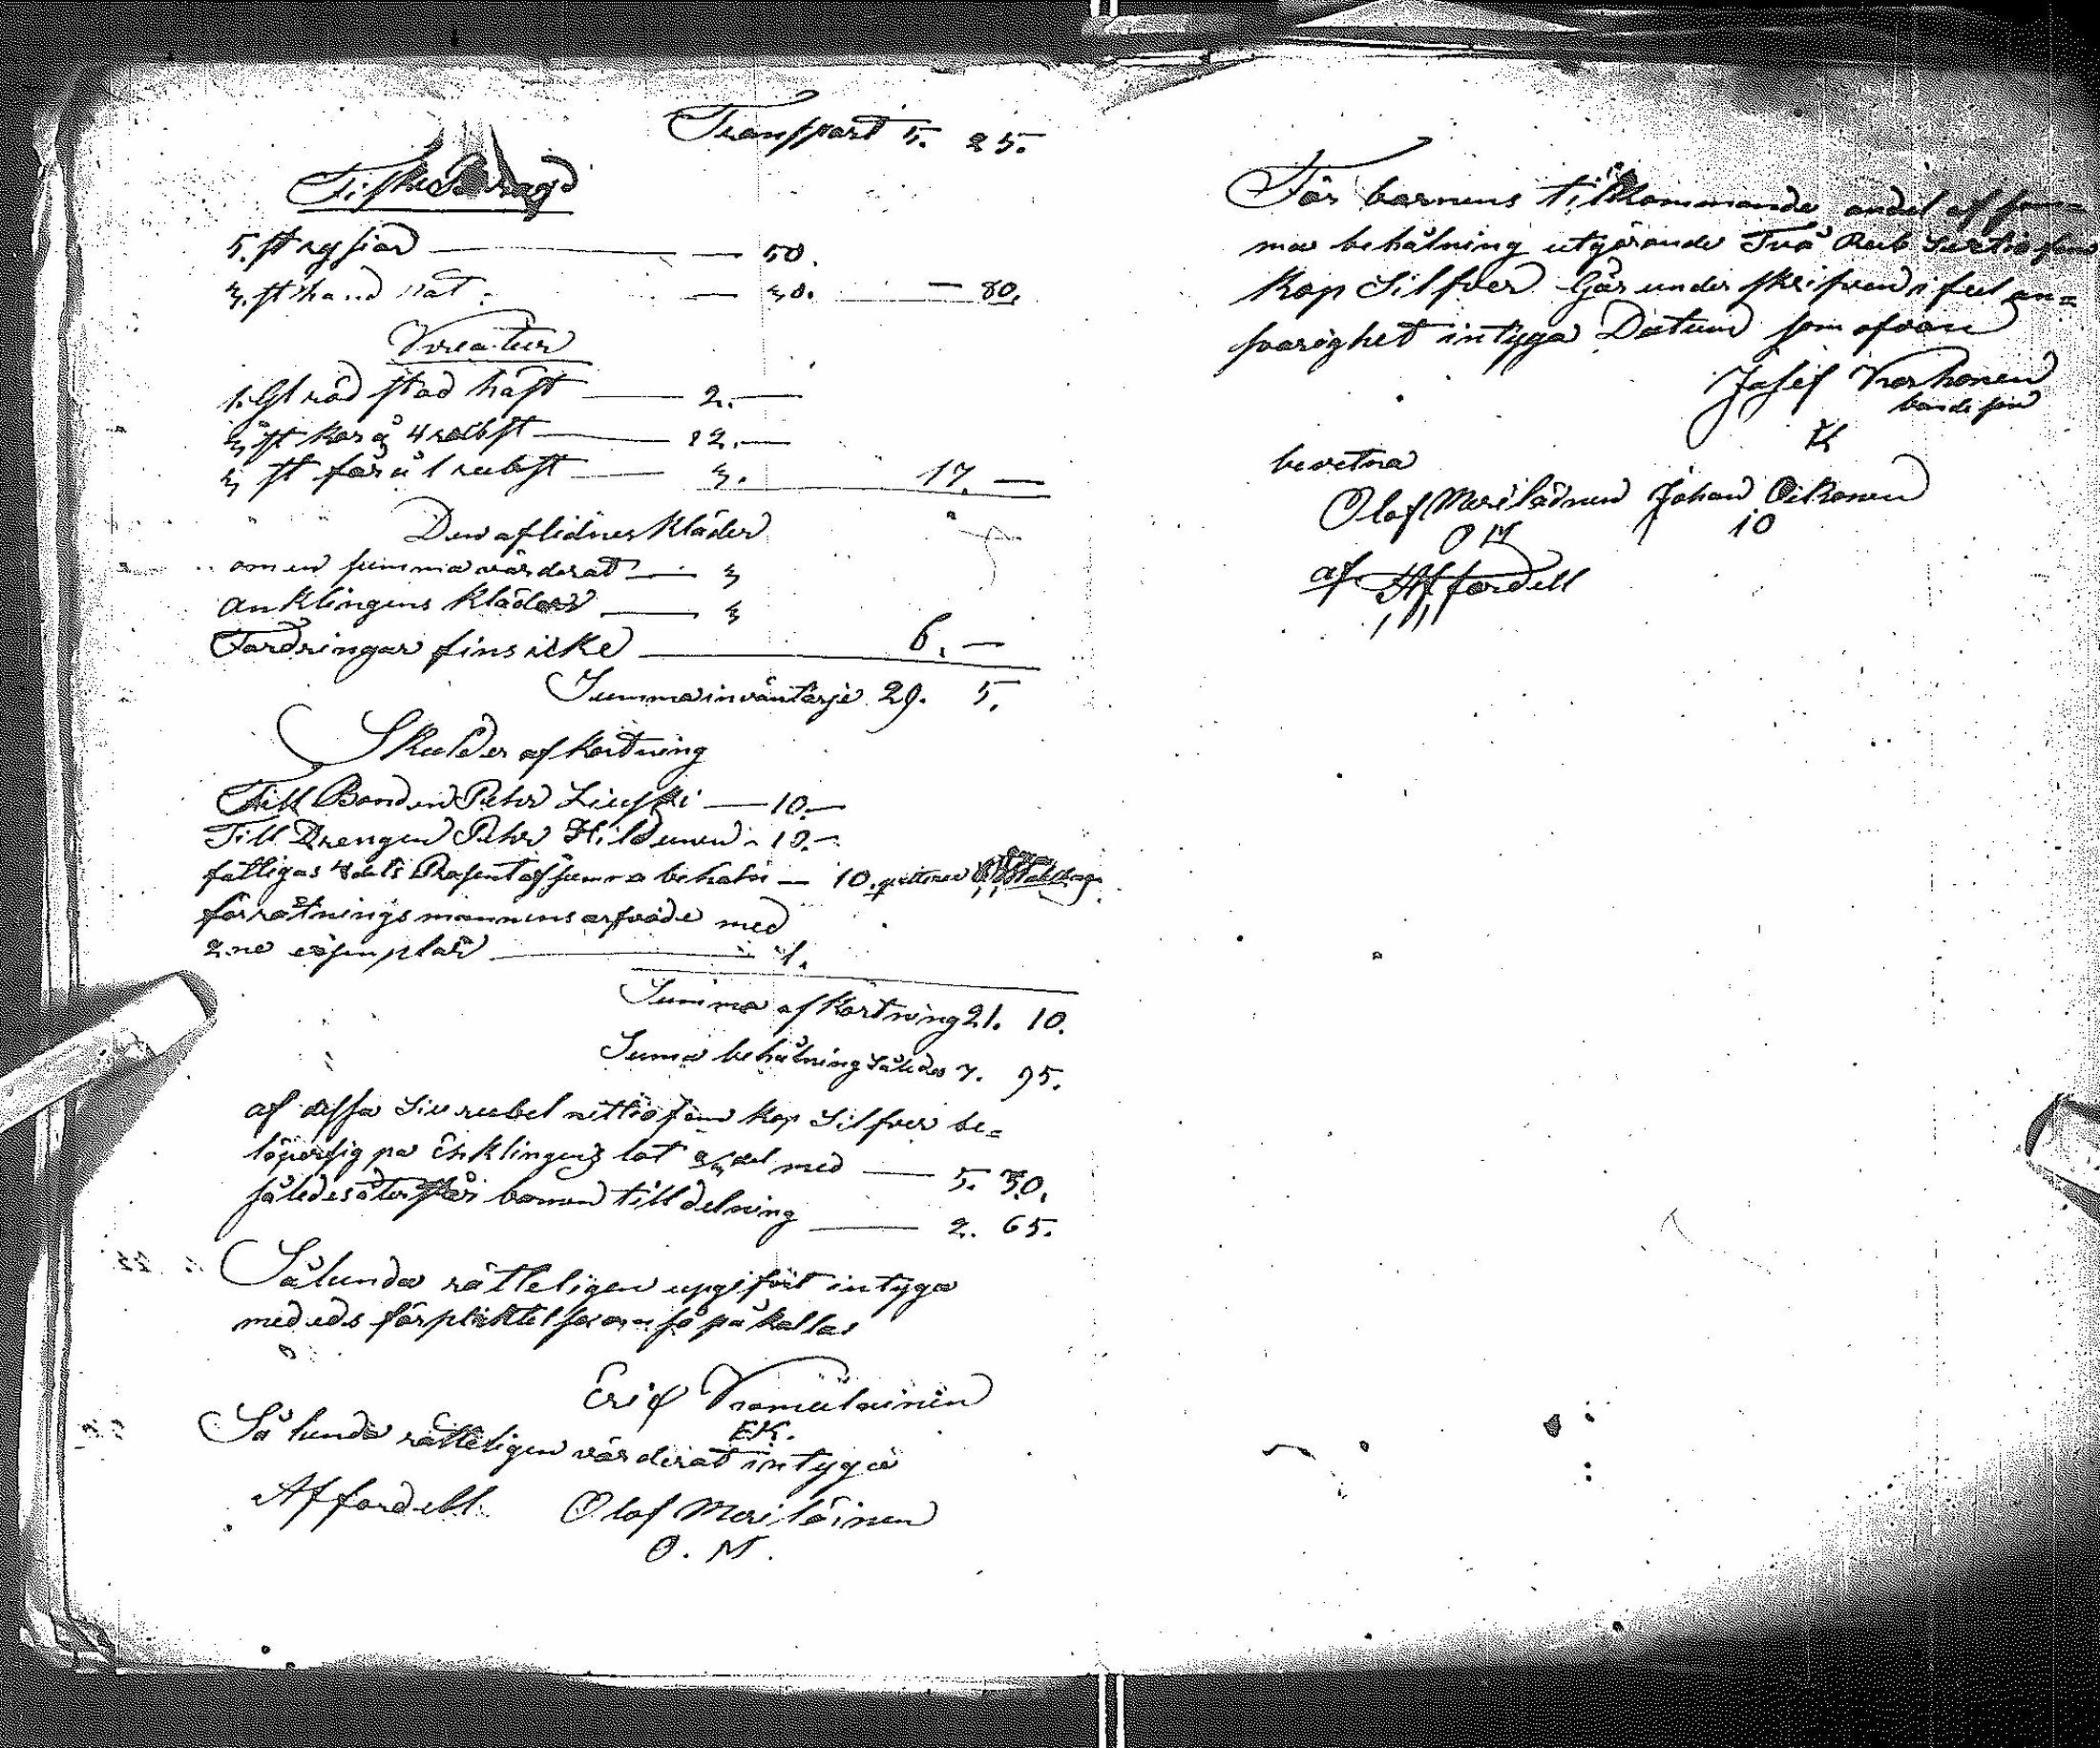 Transport 5. 25.
Fiske Bragd
5. st ryssior — 50.
3. st hand nät — 30. — 80.
Kreatur
1. st röd stod häst — 2. —
3 st kor á 4 rub st — 12. —
3 st får á 1 rub st — 3. 17. —
Den aflidnes kläder
om en summa värderat — 3
Anklingens kläder — 3
Fordringar fins icke — 6. —
Summa inväntarje 29. 5.
Skulder afkortning
Till Bonden Pehr — 10. —
Till Drengen Pehr Hildunen - 10. —
fattigas 4dels Prosent af summa behåln — 10. qvitteras
förrätningsmannens arfvode med
2:ne exsemplar — 1.
Summa afkortning 21. 10.
Summa behålning således 7. 95.
af dessa Siu rubel nittiofem kop Silfver be=
löper sig på Enklingens lot 2/3 del med — 5. 30.
således återstår barnen till delning — 2. 65.
Sålunda rätteligen upgifvit intyga
med eds förpliktelse om så påkallas
Eric Kramulainen
EK.
Sålunda rätteligen värderat intyga
Af fordell Olof Meriläinen
O. M.
För barnens tillkommande andel af sum=
ma behålning utgörande Två Rub Sextiofem
Kop Silfver Går underskrifven i ful an=
svarighet intyga Datum som ofvan
Josef Korhonen
bonde son
bevitna
Olof Meriläinen Johan Oikonen
O M IO
af Af fordell